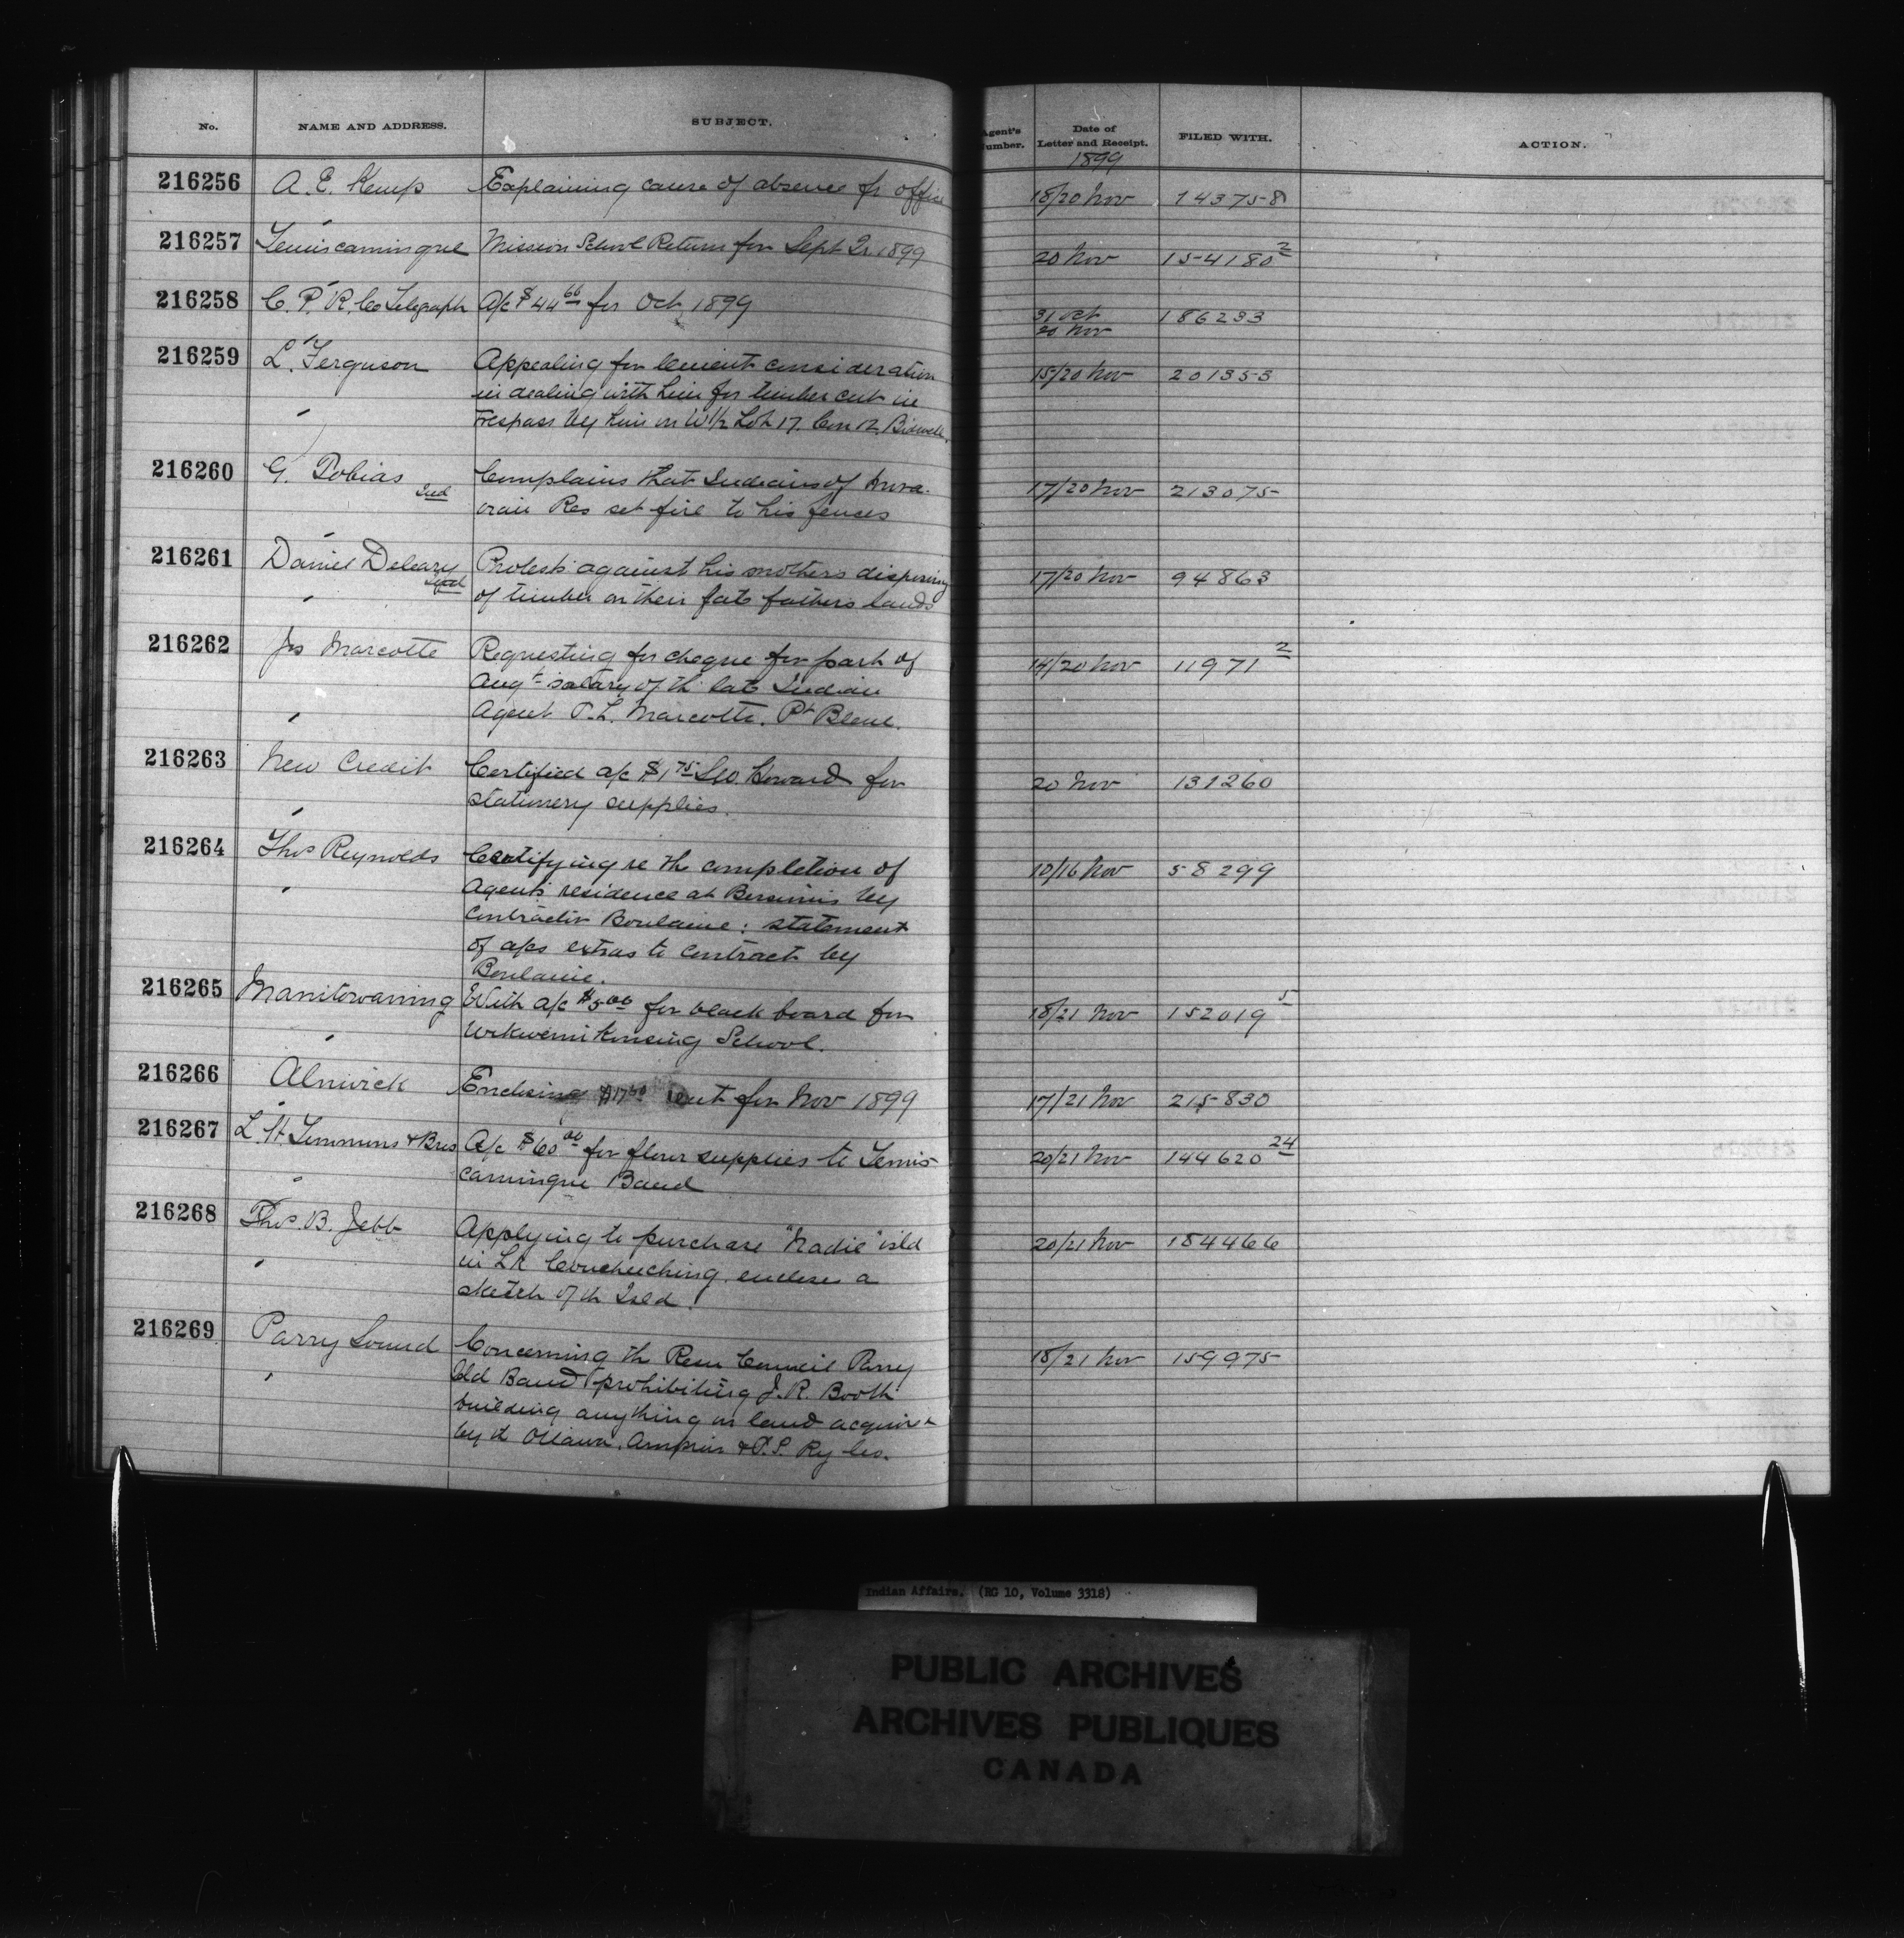 No. NAME AND ADDRESS. SUBJECT. Agent's Number. Date of Letter and Receipt. FILED WITH. ACTION.
1899
216256 A. E. Kemp Explaining cause of absence fr office 18/20 Nov 143758
216257 Temiscamingue Mission School Return for Sept Qr. 1899 20 Nov 154180 2
216258 C. P. R. Co Telegraph A/c $44 66 for Oct 1899 31 Oct 186233
20 Nov
216259 L. Ferguson Appealing for lenient consideration 15/20 Nov 201353
in dealing with him for timber cut in
trespass by him on W 1/2 Lot 17. Con 12. Bidwell.
216260 G. Tobias Ind Complains that Indians of Mora- 17/20 Nov 213075
vian Res set fire to his fences
216261 Daniel Deleary Ind Protests against his mothers disposing 17/20 Nov 94863
of timber on their late fathers lands
216262 Jos Marcotte Requesting for cheque for part of 14/20 Nov 11971 2
Augt salary of th late Indian
Agent P. L. Marcotte. Pt Bleue.
216263 New Credit Certified a/c $1 75 Geo. Howard for 20 Nov 131260
stationery supplies.
216264 Thos Reynolds Certifying re th completion of 10/16 Nov 58299
Agents residence at Bersimis by
contractor Boulaine: statement
of a/cs extras to contract by
Boulaine.
216265 Manitowaning With a/c $5 00 for black board for 18/21 Nov 152019 5
Wikwemikonsing School.
216266 Alnwick Enclosing $17 50 rent for Nov 1899 17/21 Nov 215830
216267 L. H. Timmins & Bros A/c $60 00 for flour supplies to Temis- 20/21 Nov 144620 24
camingue Band
216268 Thos. B. Jebb Applying to purchase "Nadie" isld 20/21 Nov 184466
in Lk Couchiching. encloses a
sketch of th Isld.
216269 Parry Sound Concerning th Resn Council Parry 18/21 Nov 159975
Isld Band prohibiting J. R. Booth
building anything on land acquired
by th Ottawa, Arnprior & P. S. Ry Co.
Indian Affairs. (RG 10, Volume 3318)
PUBLIC ARCHIVES
ARCHIVES PUBLIQUES
CANADA